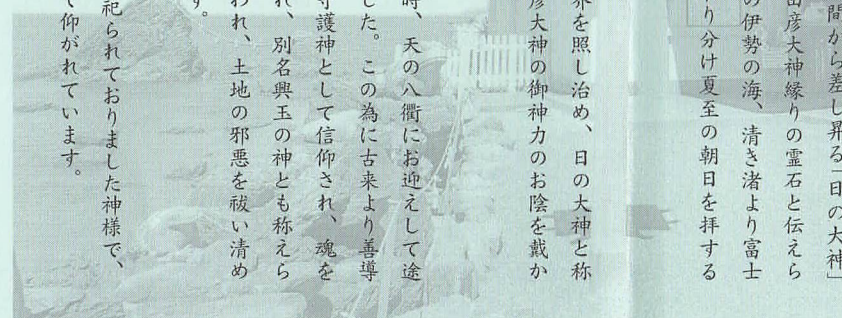 間から差し昇る「日の大神」
田彦大神縁りの霊石と伝えら
の伊勢の海、清き渚より富士
り分け夏至の朝日を拝する
界を照し治め、日の大神と称
彦大神の御神力のお陰を戴か
時、天の八衢にお迎えして途
した。この為に古来より善導
守護神として信仰され、魂を
れ、別名興玉の神とも称えら
われ、土地の邪悪を祓い清め
す。
祀られておりました神様で、
て仰がれています。